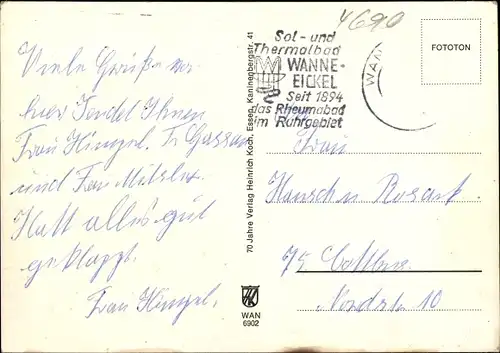 4690
Sol- und
Thermalbad
WANNE-
EICKEL
Seit 1894
das Rheumabad
im Ruhrgebiet
WAN
FOTOTON
Viele Grüße von
hier sendet Ihnen
Frau Hingel. Fr Gassan
und Frau
Hatt alles gut
geklappt.
Frau Hingel.
70 Jahre Verlag Heinrich Koch, Essen, Kaninenbergstr. 41
WAN
6902
Frau
75 Cottbus
Nordstr 10